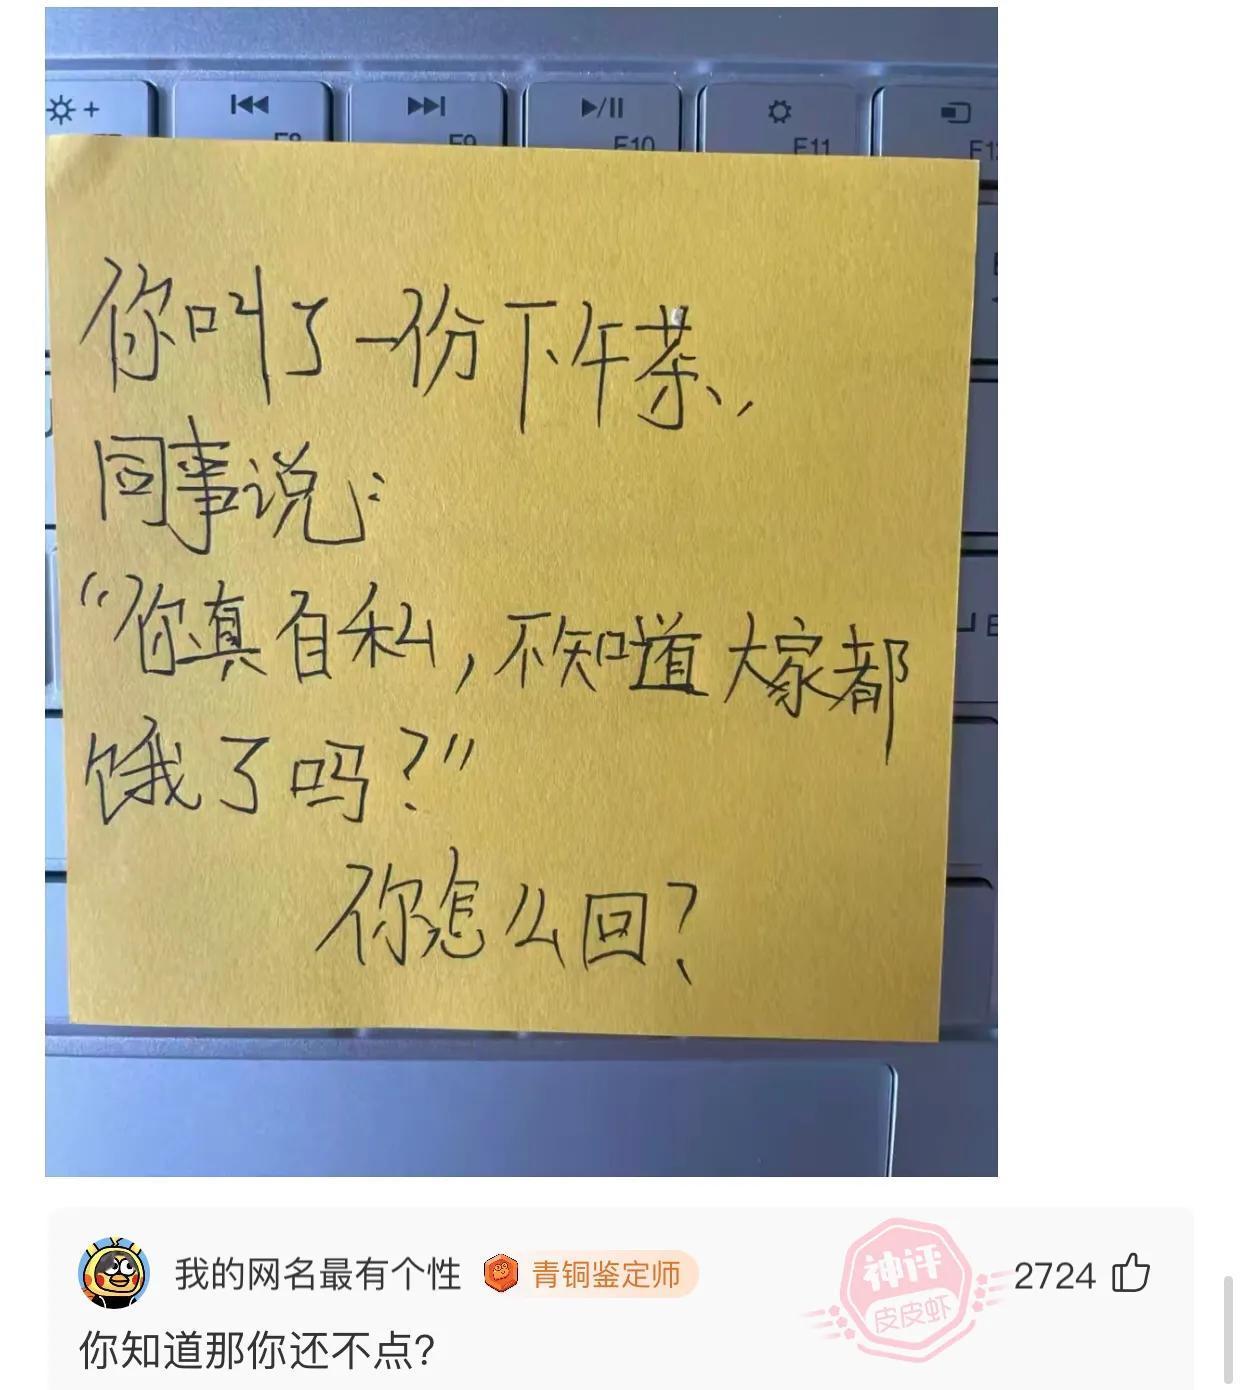 F8
F9
F10
F11
你叫了一份下午茶，
同事说：
“你真自私，不知道大家都
饿了吗？”
你怎么回？
我的网名最有个性
青铜鉴定师
神评
皮皮虾
2724
你知道那你还不点?